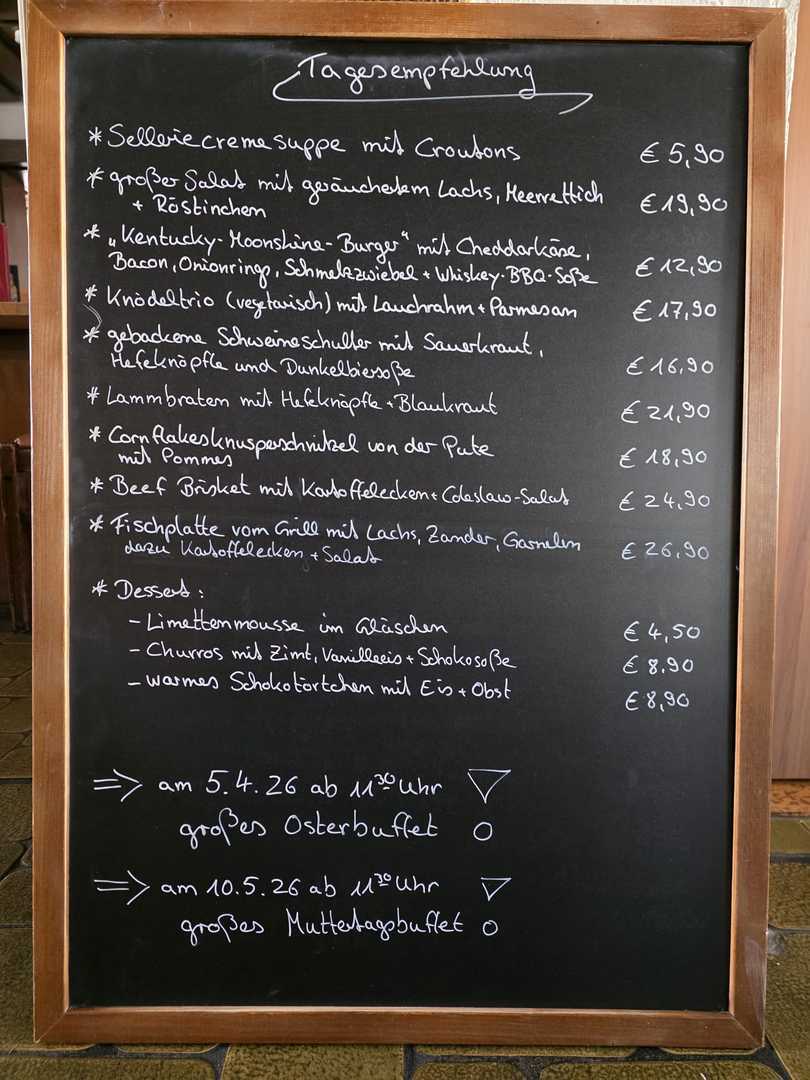 Tagesempfehlung
* Selleriecremesuppe mit Croutons € 5,90
* großer Salat mit geräuchertem Lachs, Meerrettich
+ Röstinchen € 19,90
* „Kentucky-Moonshine-Burger“ mit Cheddarkäse,
Bacon, Onionring, Schmelzzwiebel + Whiskey-BBQ-Soße € 12,90
* Knödeltrio (vegetarisch) mit Lauchrahm + Parmesan € 17,90
* gebackene Schweineschulter mit Sauerkraut,
Hefeknöpfle und Dunkelbiersoße € 16,90
* Lammbraten mit Hefeknöpfle + Blaukraut € 21,90
* Cornflakesknusperschnitzel von der Pute
mit Pommes € 18,90
* Beef Brisket mit Kartoffelecken + Coleslaw-Salat € 24,90
* Fischplatte vom Grill mit Lachs, Zander, Garnelen
dazu Kartoffelecken + Salat € 26,90
* Dessert:
- Limettenmousse im Gläschen € 4,50
- Churros mit Zimt, Vanilleeis + Schokosoße € 8,90
- warmes Schokotörtchen mit Eis + Obst € 8,90
⇒ am 5.4.26 ab 11³⁰ Uhr
großes Osterbuffet
⇒ am 10.5.26 ab 11³⁰ Uhr
großes Muttertagsbuffet